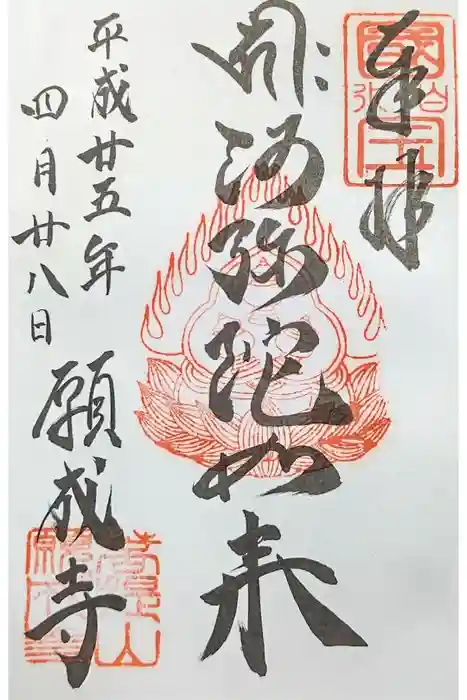 奉拝
國宝
白水
阿弥陀如来
平成廿五年
四月廿八日
願成寺